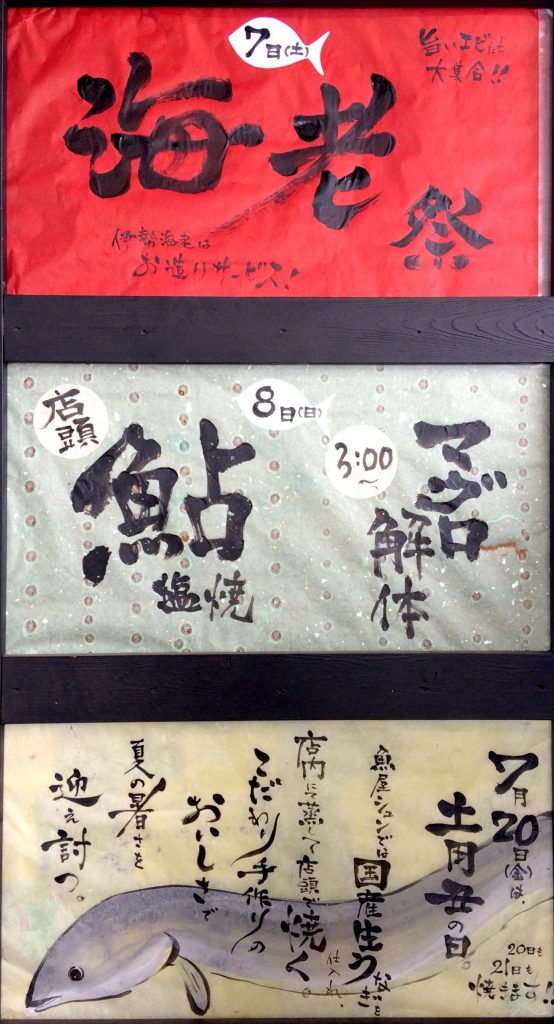 7日(土)
海老祭
旨いエビたち
大集合!!
伊勢海老は
お造りサービス!
8日(日)
店頭
鮎
塩焼
3:00〜
マグロ
解体
7月20日(金)は、
土用丑の日。
20日も
21日も
焼きます!!
魚屋シュンでは国産生うなぎを
仕入れ、
店内にて蒸して店頭で焼く。
こだわり手作りの
おいしさで
夏の暑さを
迎え討つ。